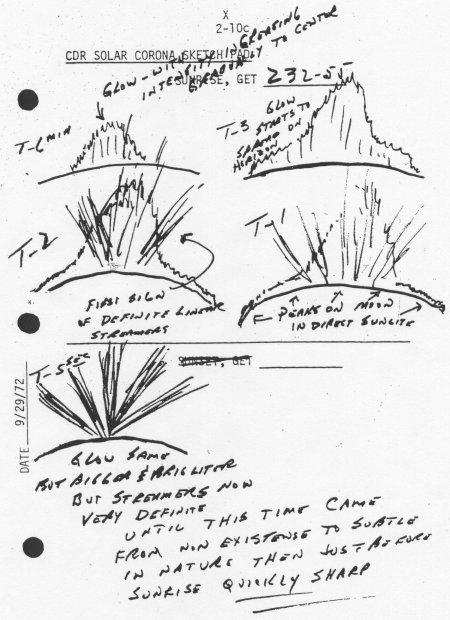 X
2-10c
CDR SOLAR CORONA SKETCH PAD
SUNRISE, GET 232-55
GLOW - WITH INCREASING
INTENSITY
GREATLY TO CENTER
T-6 MIN
T-3
GLOW
STARTS TO
SPREAD ON
HORIZON
T-2
FIRST SIGN
OF DEFINITE LINEAR
STREAMERS
T-1
PEAKS ON MOON
IN DIRECT SUNLITE
T-5 SEC
SUNSET, GET
DATE 9/29/72
GLOW SAME
BUT BIGGER & BRIGHTER
BUT STREAMERS NOW
VERY DEFINITE
UNTIL THIS TIME CAME
FROM NON EXISTENSE TO SUBTLE
IN NATURE THEN JUST BEFORE
SUNRISE QUICKLY SHARP